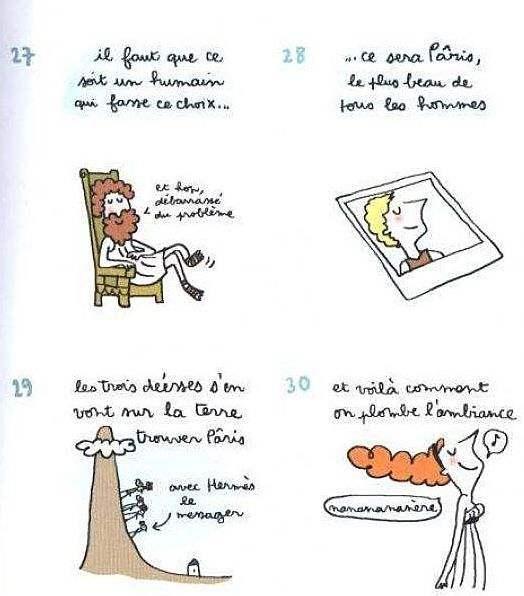 27
il faut que ce
soit un humain
qui fasse ce choix...
et hop,
débarrassé
du problème
28
... ce sera Pâris,
le plus beau de
tous les hommes
29
les trois déesses s'en
vont sur la terre
trouver Pâris
avec Hermès
le
messager
30
et voilà comment
on plombe l'ambiance
nananananère